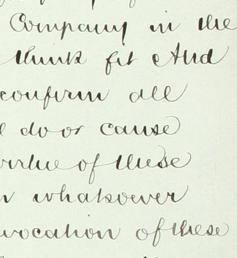 Company in the
think fit And
confirm all
do or cause
virtue of these
whatsoever
vocation of these